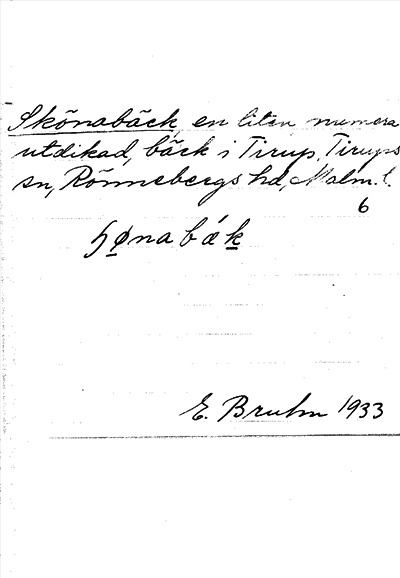 Skönabäck, en liten numera
utdikad, bäck i Tirup, Tirups
sn, Rönnebergs hd, Malm. l.
6
ɧø̲nabák̲
E. Bruhn 1933